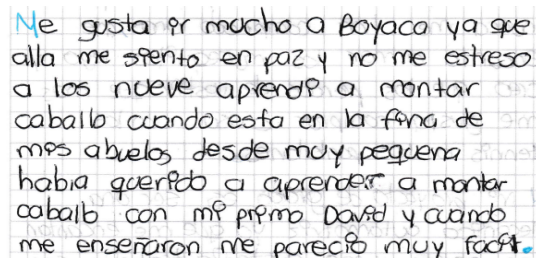 Me gusta ir mucho a Boyaca ya que
alla me siento en paz y no me estreso
a los nueve aprendi a montar
caballo cuando esta en la finca de
mis abuelos desde muy pequena
habia querido a aprender a montar
caballo con mi primo David y cuando
me enseñaron me parecio muy facil.